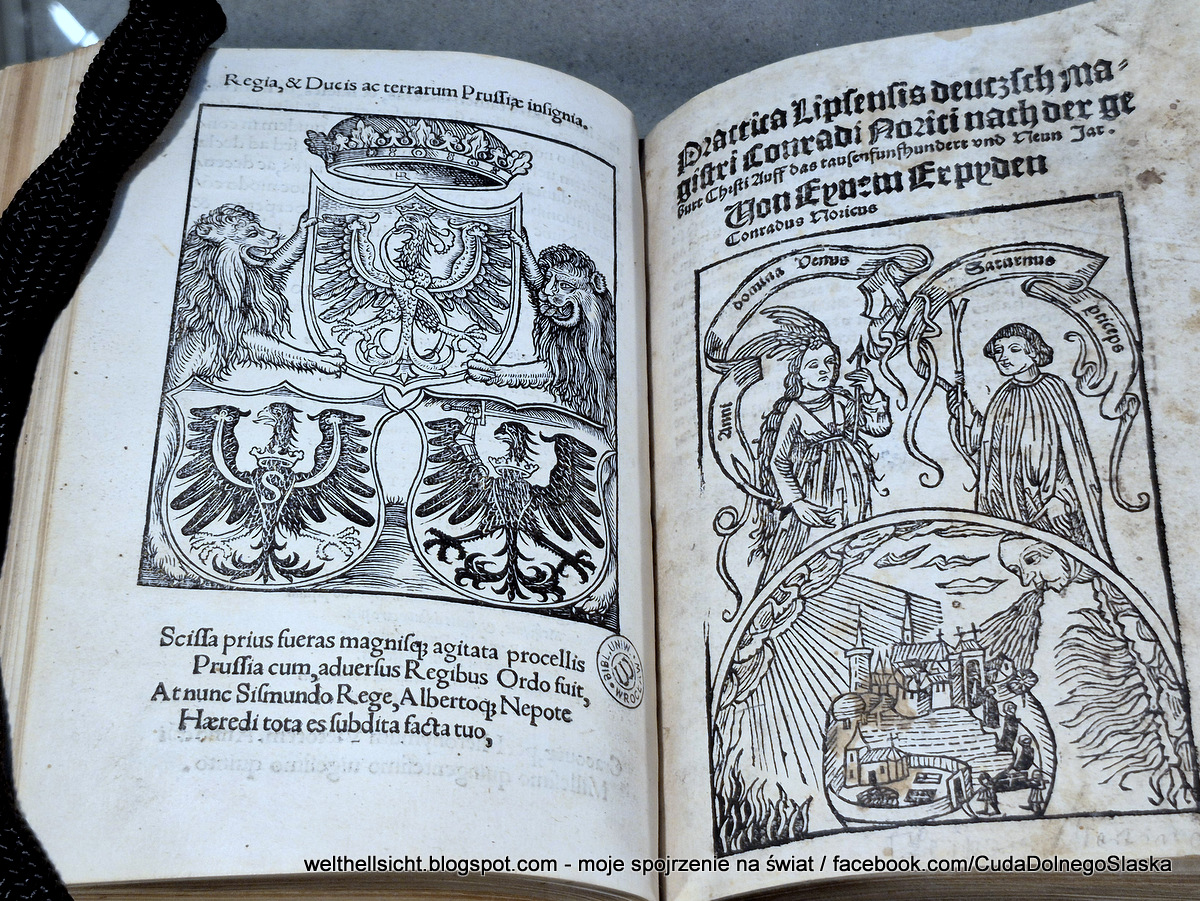 Regia, & Ducis ac terrarum Prussiæ insignia.
HR
S
Scissa prius fueras magnisq; agitata procellis
Prussia cum, adversus Regibus Ordo fuit,
At nunc Sismundo Rege, Albertoq; Nepote
Hæredi tota es subdita facta tuo,
BIBL. UNIW. WROCŁ
Practica Lipsensis deutzsch Ma-
gistri Conradi Norici nach der ge
burt Christi Auff das tausenfunfhundert vnd Neun Jar.
Von Eynem Erpyden
Conradus Noricus
Anni domina Venus
Saturnus princeps
welthellsicht.blogspot.com - moje spojrzenie na świat / facebook.com/CudaDolnegoSlaska